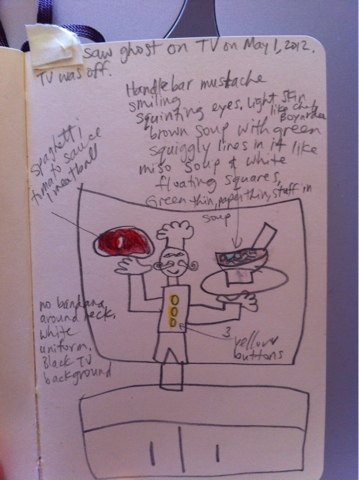 saw ghost on TV on May 1, 2012.
TV was off.
Handlebar mustache
smiling
squinting eyes, light skin
like chef
Boyardee
brown soup with green
squiggly lines in it like
miso soup & white
floating squares,
Green thin, paper thin, stuff in
soup
spaghetti
tomato sauce
1 meatball
no bandana
around neck.
white
uniform.
Black TV
background
3
yellow
buttons